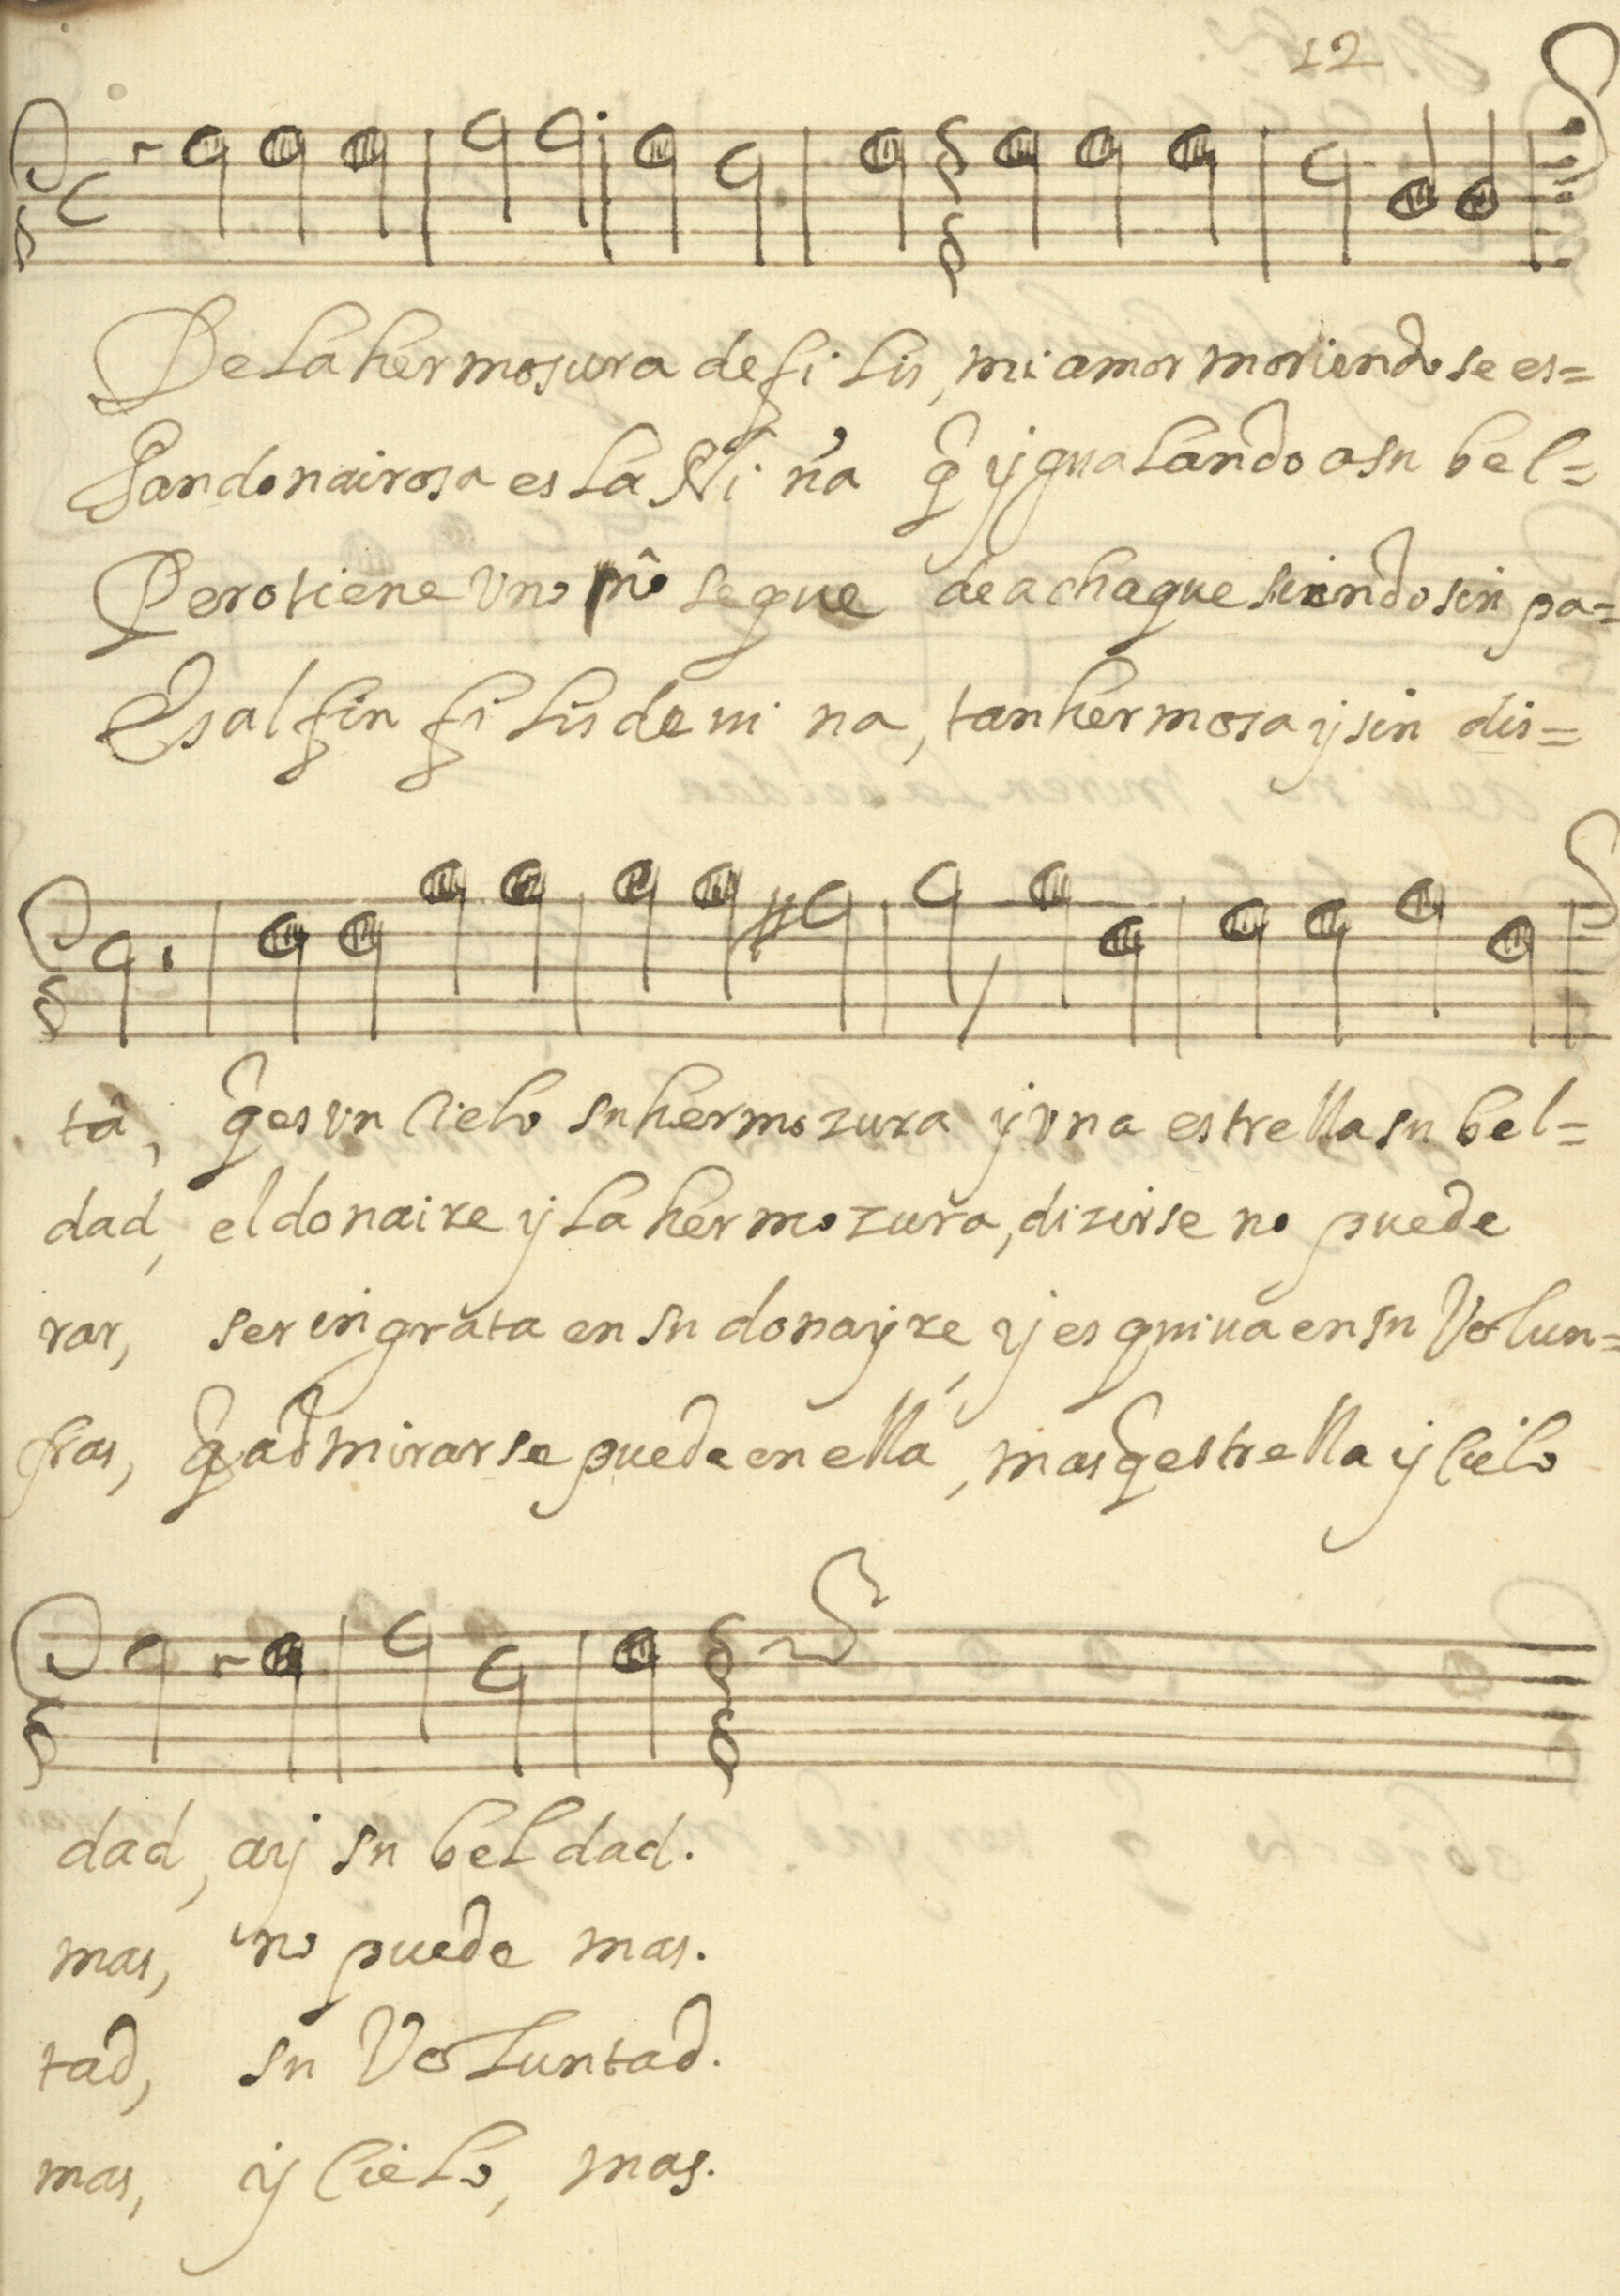 12
De la hermosura de filis, mi amor moriendose es=
Tan donairosa es la Ni ña q̂ ygualando a su bel=
Pero tiene vn no se que de achaque siendo sin pa=
Es al fin fi lis de ui na, tan hermosa y sin dis=
tâ, q̂ es vn cielo su hermozura y vna estrella su bel=
dad, el donaire y la hermozura, dizirse no puede
rar, ser ingrata en su donayre, y esquiua en su Volun=
fras, q̂ admirarse puede en ella, mas q̂ estrella y cielo
dad, ay su beldad.
mas, no puede mas.
tad, su Voluntad.
mas, y cielo, mas.